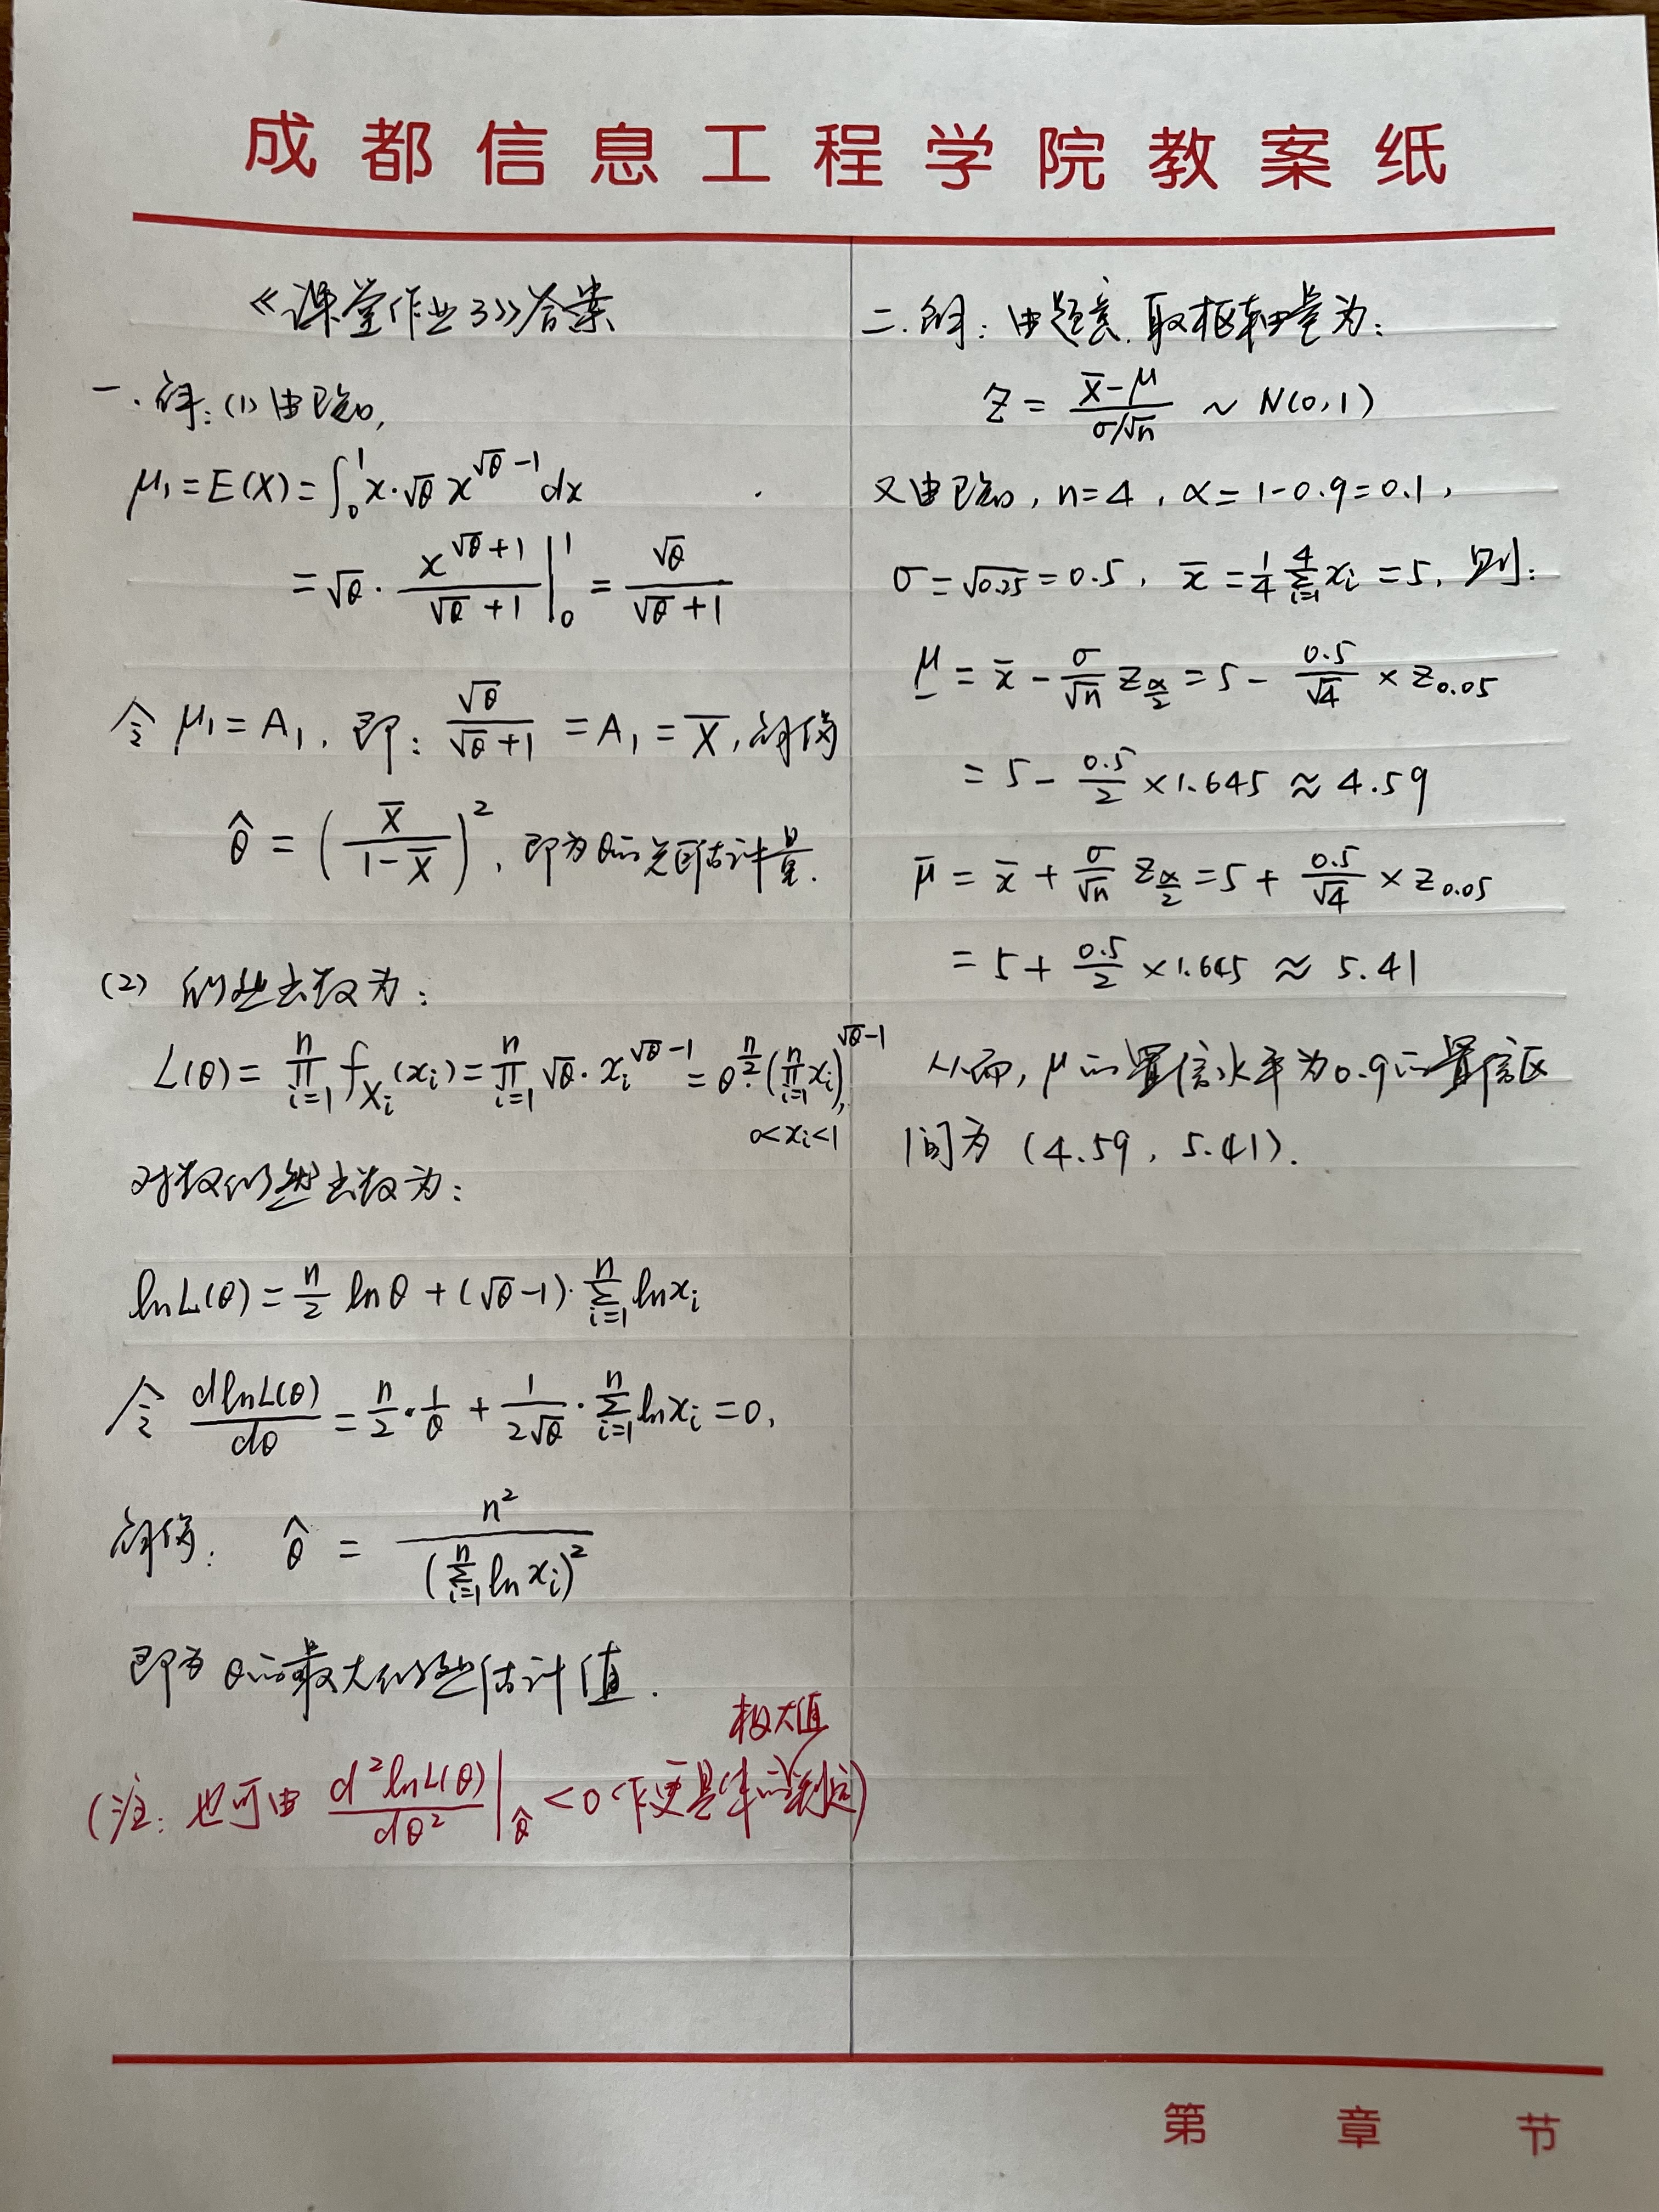 成都信息工程学院教案纸
《课堂作业3》答案
一.解:(1)由已知,
μ₁=E(X)=∫₀¹x·√θ x^(√θ-1)dx
=√θ·x^(√θ+1)/(√θ+1)|₀¹=√θ/(√θ+1)
令μ₁=A₁,即:√θ/(√θ+1)=A₁=X̄,解得
θ̂=(X̄/(1-X̄))²,即为θ的矩估计量.
(2) 似然函数为:
L(θ)=∏ᵢ₌₁ⁿ f_Xᵢ(xᵢ)=∏ᵢ₌₁ⁿ √θ·xᵢ^(√θ-1)=θ^(n/2)·(∏ᵢ₌₁ⁿ xᵢ)^(√θ-1),
0<xᵢ<1
对数似然函数为:
lnL(θ)=n/2 lnθ+(√θ-1)·∑ᵢ₌₁ⁿ lnxᵢ
令 dlnL(θ)/dθ=n/2·1/θ+1/(2√θ)·∑ᵢ₌₁ⁿ lnxᵢ=0,
解得: θ̂=n²/(∑ᵢ₌₁ⁿ ln xᵢ)²
即为θ的最大似然估计值.
极大值
(注:也可由 d²lnL(θ)/dθ²|θ̂<0 作更具体的判定)
二.解:由题意,取枢轴量为:
Z=(X̄-μ)/(σ/√n) ~ N(0,1)
又由已知,n=4,α=1-0.9=0.1,
σ=√0.25=0.5, x̄=1/4 ∑ᵢ₌₁⁴ xᵢ=5,则:
μ̲=x̄-σ/√n z_(α/2)=5-0.5/√4×z₀.₀₅
=5-0.5/2×1.645≈4.59
μ̄=x̄+σ/√n z_(α/2)=5+0.5/√4×z₀.₀₅
=5+0.5/2×1.645≈5.41
从而,μ的置信水平为0.9的置信区
间为(4.59,5.41).
第 章 节